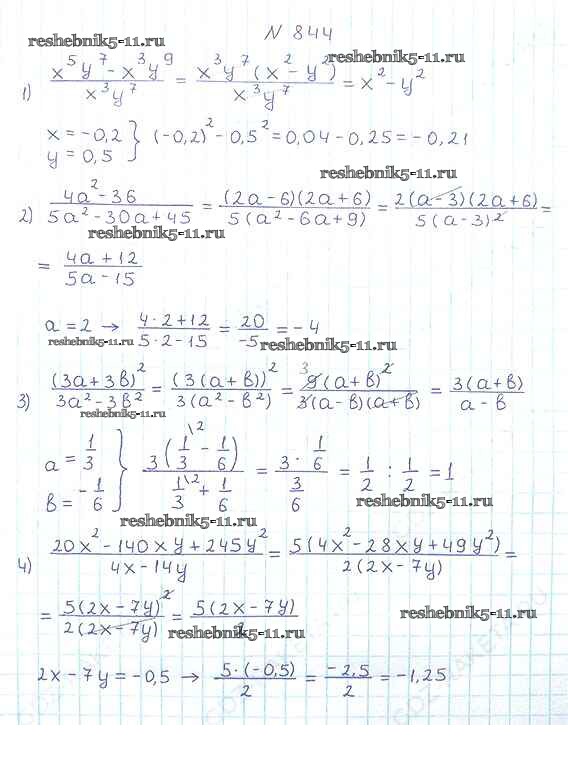 N 844
reshebnik5-11.ru
reshebnik5-11.ru
1) (x⁵y⁷ - x³y⁹)/(x³y⁷) = (x³y⁷(x² - y²))/(x³y⁷) = x² - y²
x = -0,2
y = 0,5 } (-0,2)² - 0,5² = 0,04 - 0,25 = -0,21
reshebnik5-11.ru
2) (4a² - 36)/(5a² - 30a + 45) = ((2a - 6)(2a + 6))/(5(a² - 6a + 9)) = (2(a - 3)(2a + 6))/(5(a - 3)²) =
reshebnik5-11.ru
= (4a + 12)/(5a - 15)
a = 2 → (4·2 + 12)/(5·2 - 15) = 20/-5 = -4
reshebnik5-11.ru
reshebnik5-11.ru
3) (3a + 3b)²/(3a² - 3b²) = (3(a + b))²/(3(a² - b²)) = 3 9(a + b)²/(3(a - b)(a + b)) = 3(a + b)/(a - b)
reshebnik5-11.ru
a = 1/3
b = -1/6 } 3(1/3\2 - 1/6)/(1/3\2 + 1/6) = (3 · 1/6)/(3/6) = 1/2 : 1/2 = 1
reshebnik5-11.ru
reshebnik5-11.ru
4) (20x² - 140xy + 245y²)/(4x - 14y) = 5(4x² - 28xy + 49y²)/(2(2x - 7y)) =
= 5(2x - 7y)²/(2(2x - 7y)) = 5(2x - 7y)/2
reshebnik5-11.ru
reshebnik5-11.ru
2x - 7y = -0,5 → (5·(-0,5))/2 = -2,5/2 = -1,25